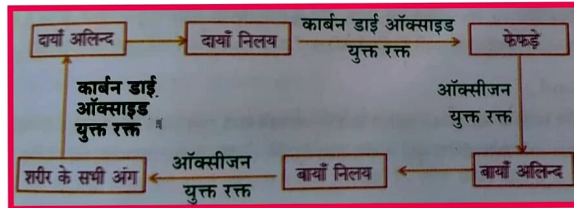 दायाँ अलिन्द
दायाँ निलय
कार्बन डाई ऑक्साइड
युक्त रक्त
फेफड़े
ऑक्सीजन
युक्त रक्त
बायाँ अलिन्द
बायाँ निलय
ऑक्सीजन
युक्त रक्त
शरीर के सभी अंग
कार्बन डाई
ऑक्साइड
युक्त रक्त